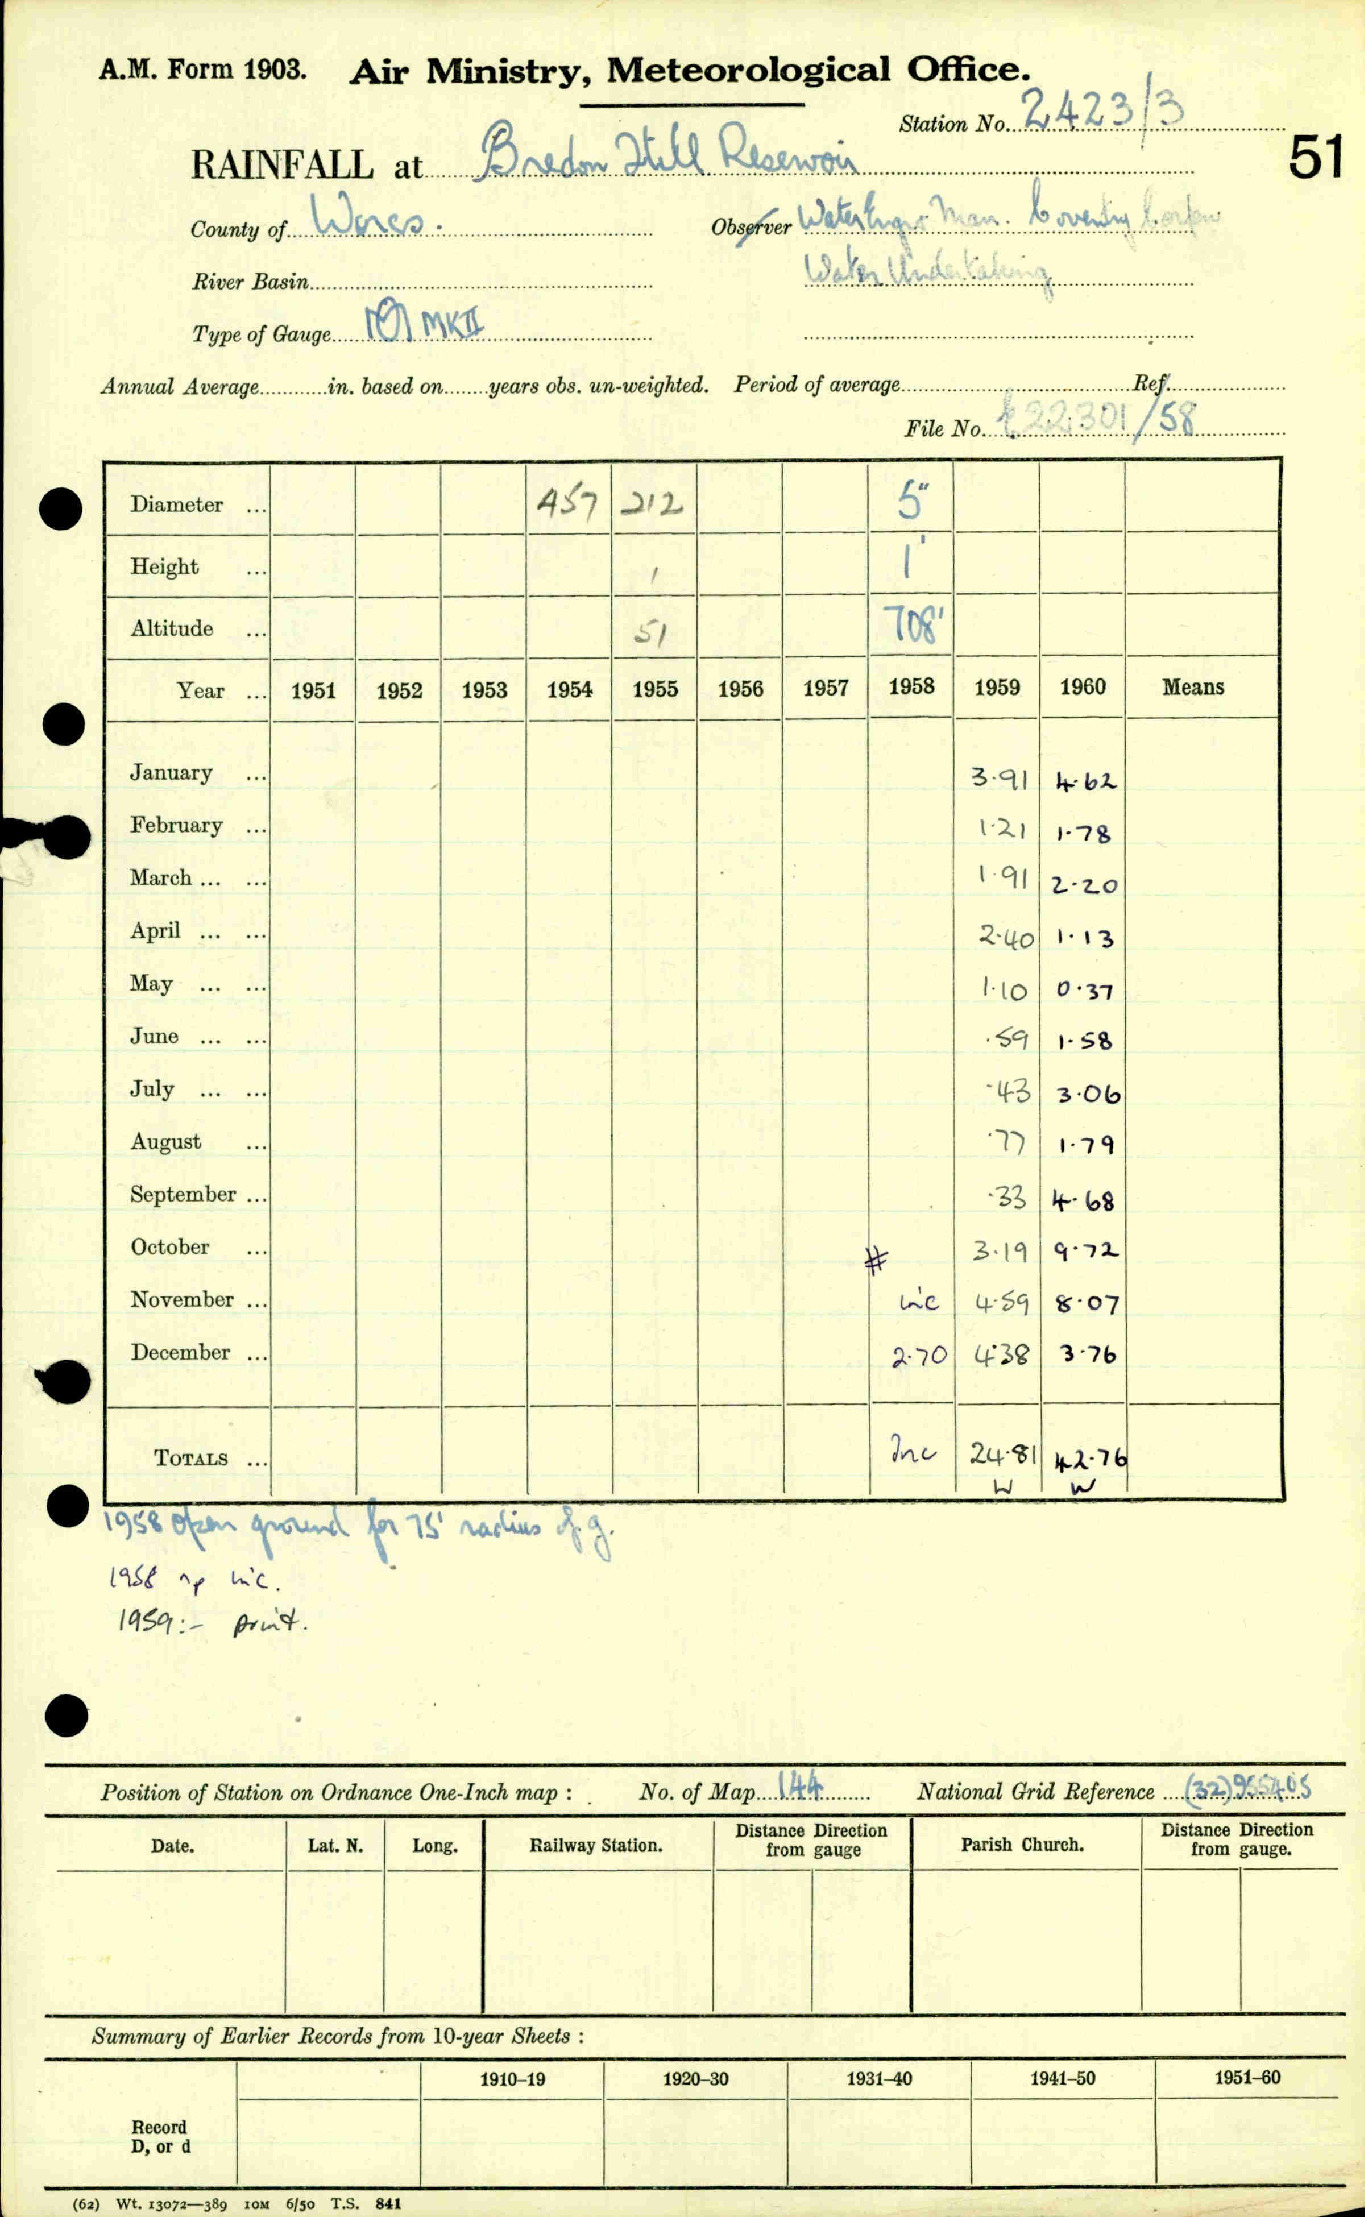 A.M. Form 1903. Air Ministry, Meteorological Office.
Station No. 2423/3
51
RAINFALL at Bredon Hill Reservoir
County of Worcs.
Observer Water Engr. Man. Coventry Corpn
River Basin
Water Undertaking
Type of Gauge MO MKII
Annual Average in. based on years obs. un-weighted. Period of average Ref.
File No. 22301/58
Diameter ... 457 212 5"
Height ... 1 1'
Altitude ... 51 708'
Year ... 1951 1952 1953 1954 1955 1956 1957 1958 1959 1960 Means
January ... 3.91 4.62
February ... 1.21 1.78
March ... ... 1.91 2.20
April ... ... 2.40 1.13
May ... ... 1.10 0.37
June ... ... .59 1.58
July ... ... .43 3.06
August ... .77 1.79
September ... .33 4.68
October ... # 3.19 9.72
November ... inc 4.59 8.07
December ... 2.70 4.38 3.76
TOTALS ... Inc 24.81 42.76
W W
1958 open ground for 75' radius of g.
1958 np inc.
1959:- print.
Position of Station on Ordnance One-Inch map : No. of Map 144 National Grid Reference (32)955405
Date. Lat. N. Long. Railway Station. Distance from Direction gauge Parish Church. Distance from Direction gauge.
Summary of Earlier Records from 10-year Sheets :
1910–19 1920–30 1931–40 1941–50 1951–60
Record
D, or d
(62) Wt. 13072—389 10M 6/50 T.S. 841